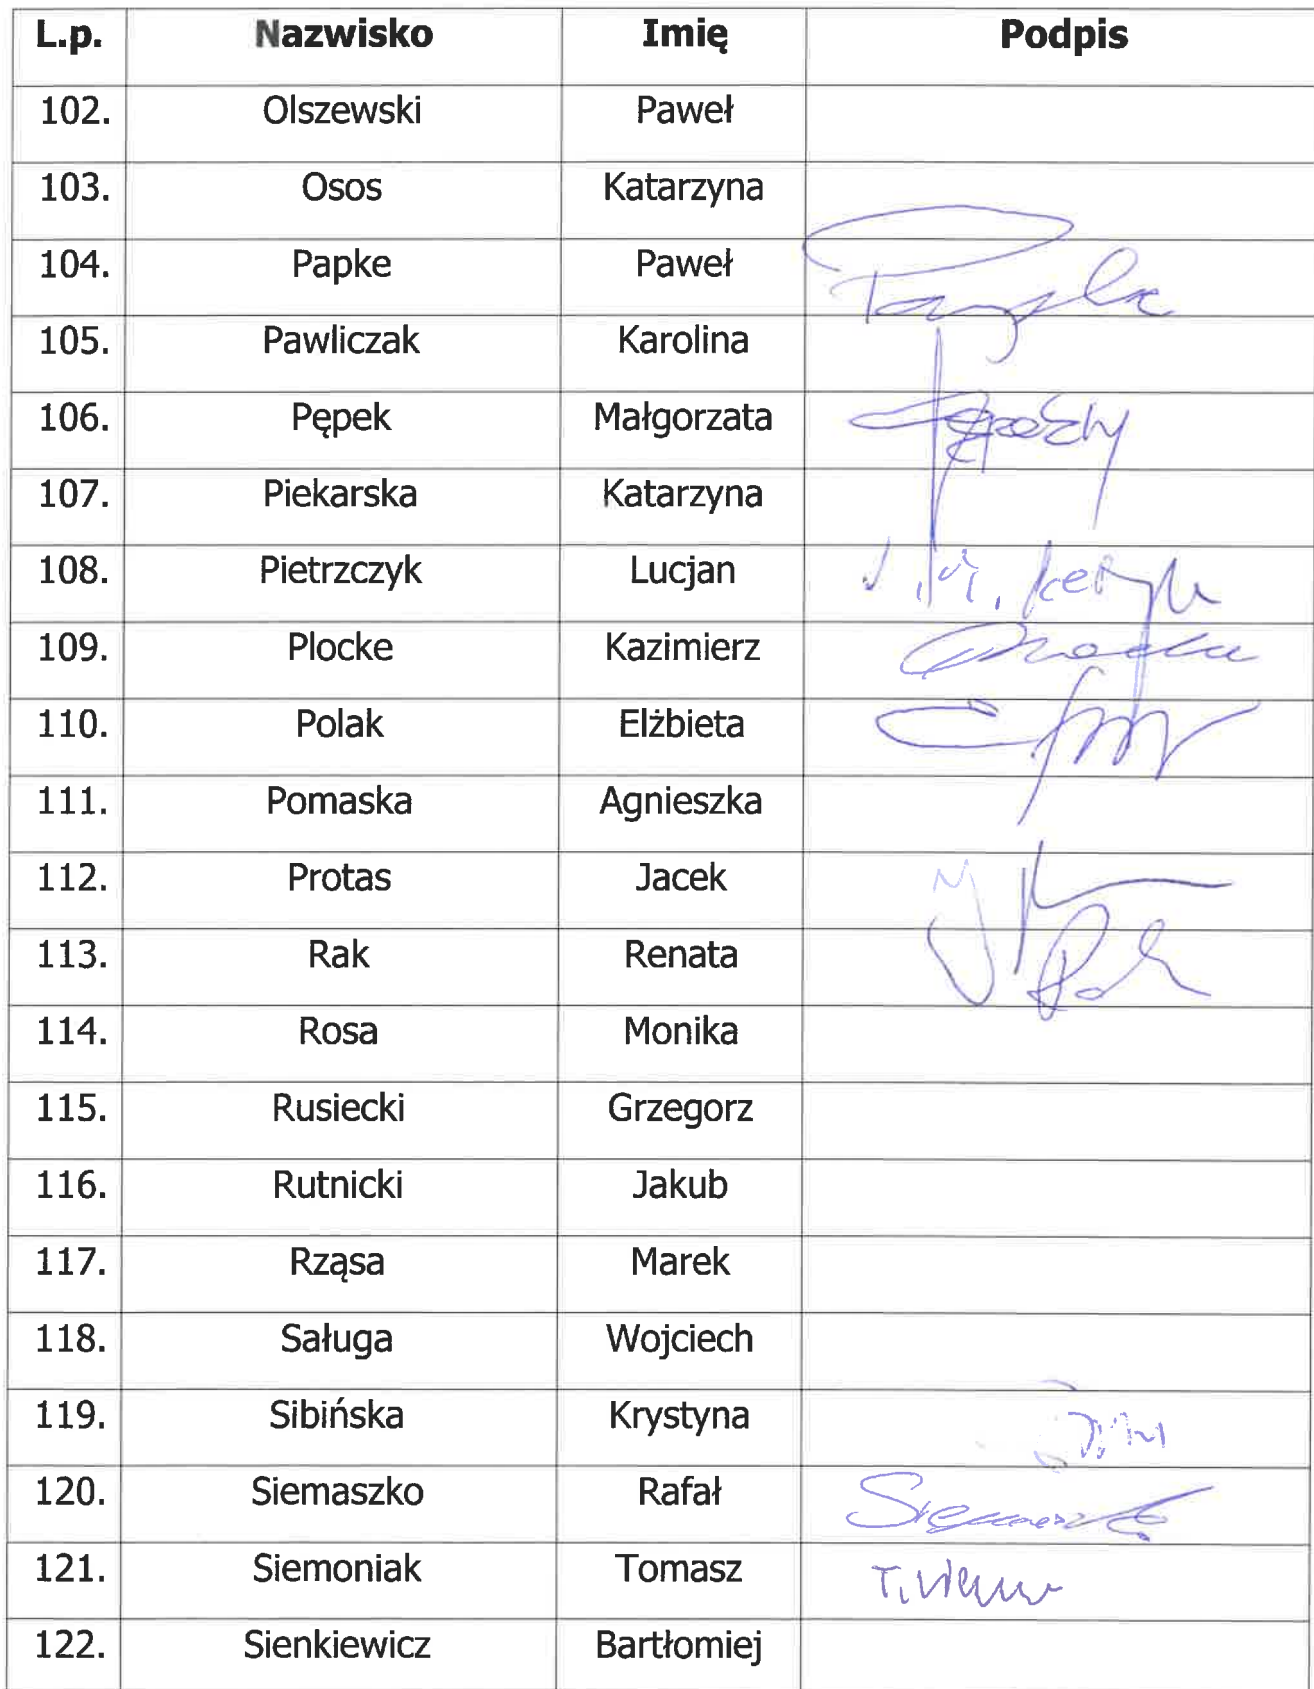 L.p. Nazwisko Imię Podpis
102. Olszewski Paweł
103. Osos Katarzyna
104. Papke Paweł
105. Pawliczak Karolina
106. Pępek Małgorzata
107. Piekarska Katarzyna
108. Pietrzczyk Lucjan
109. Plocke Kazimierz
110. Polak Elżbieta
111. Pomaska Agnieszka
112. Protas Jacek
113. Rak Renata
114. Rosa Monika
115. Rusiecki Grzegorz
116. Rutnicki Jakub
117. Rząsa Marek
118. Saługa Wojciech
119. Sibińska Krystyna
120. Siemaszko Rafał
121. Siemoniak Tomasz
122. Sienkiewicz Bartłomiej